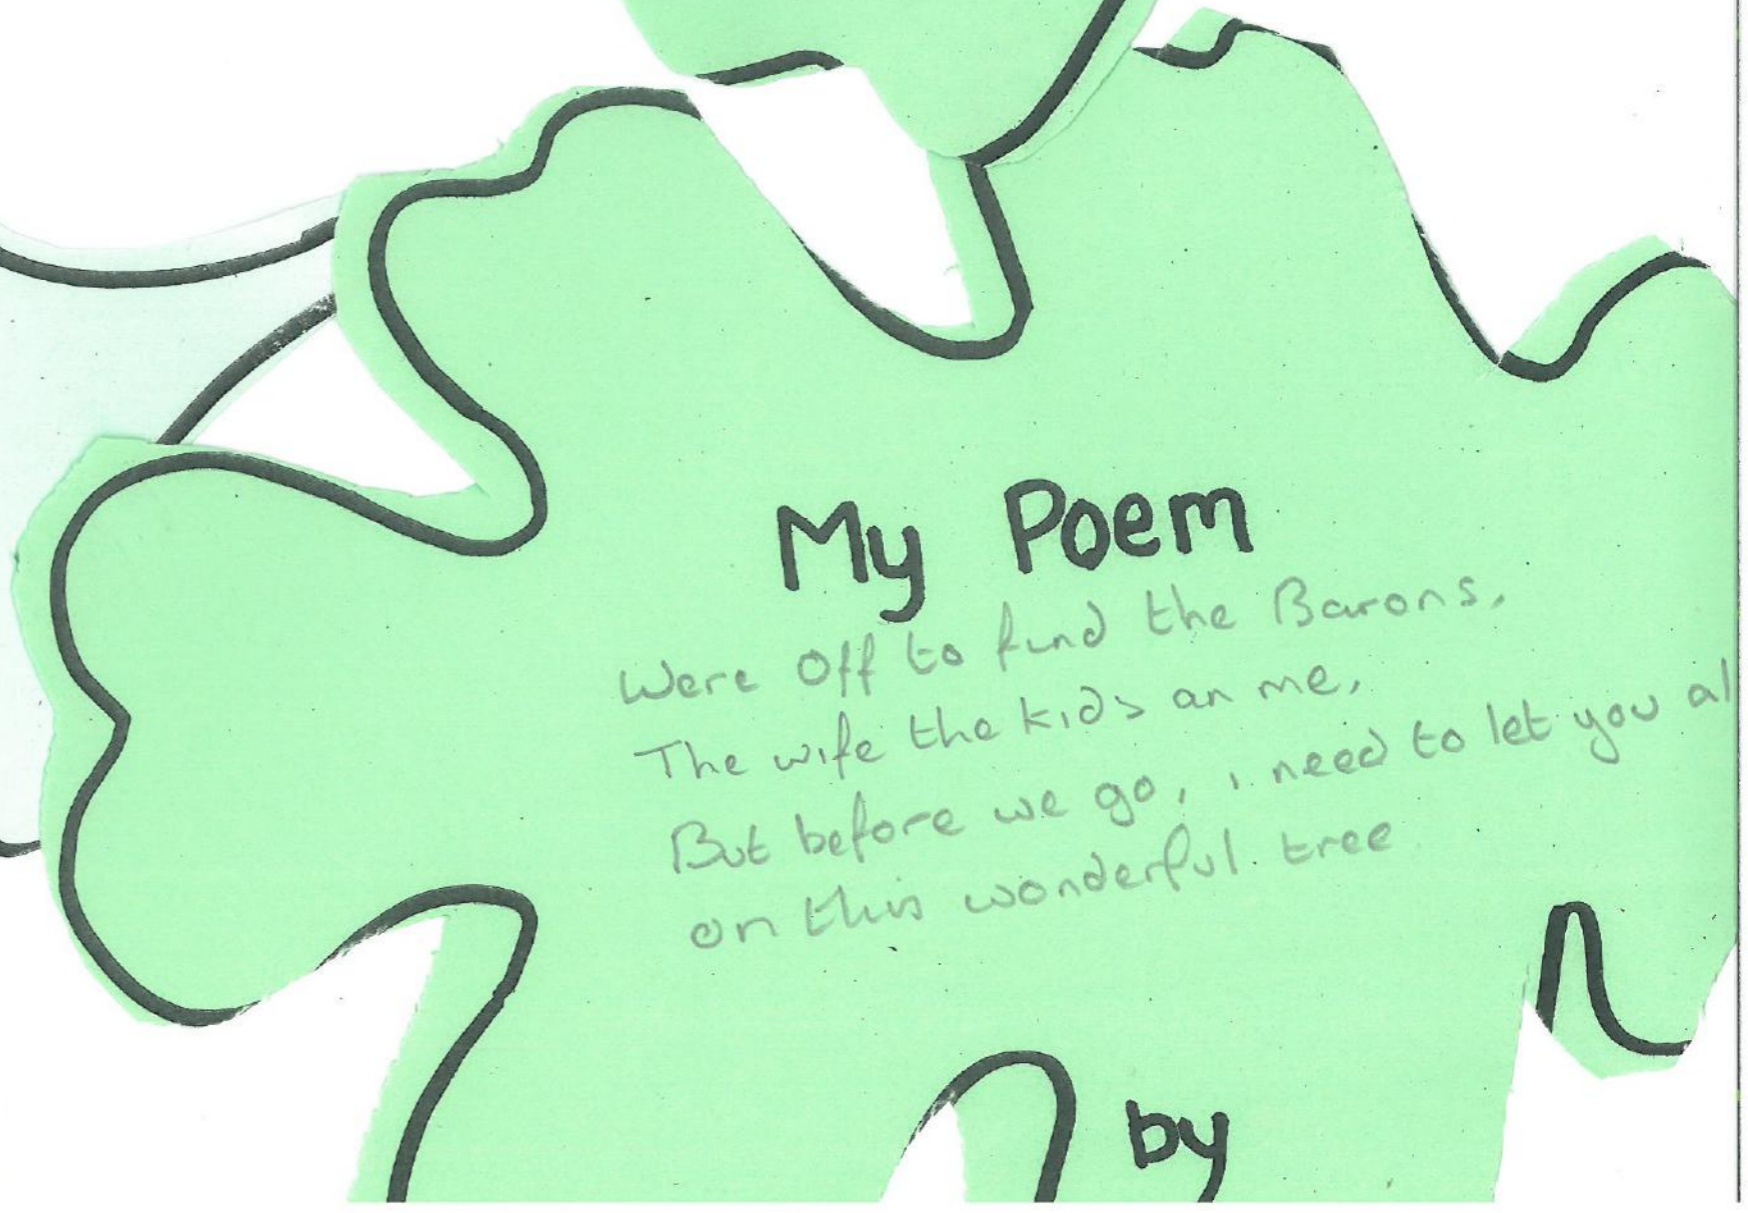 My Poem
Were Off to find the Barons,
The wife the kids an me,
But before we go, i need to let you al
on this wonderful tree
by